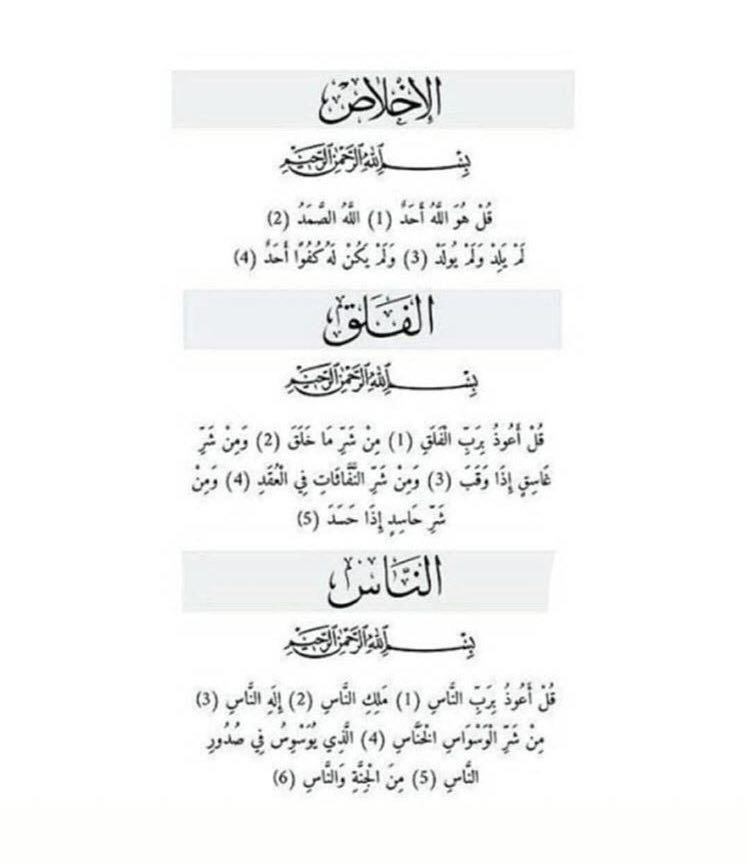 الإخلاص
بِسْمِ اللَّهِ الرَّحْمَنِ الرَّحِيمِ
قُلْ هُوَ اللَّهُ أَحَدٌ (1) اللَّهُ الصَّمَدُ (2)
لَمْ يَلِدْ وَلَمْ يُولَدْ (3) وَلَمْ يَكُنْ لَهُ كُفُوًا أَحَدٌ (4)
الفَلَق
بِسْمِ اللَّهِ الرَّحْمَنِ الرَّحِيمِ
قُلْ أَعُوذُ بِرَبِّ الْفَلَقِ (1) مِنْ شَرِّ مَا خَلَقَ (2) وَمِنْ شَرِّ
غَاسِقٍ إِذَا وَقَبَ (3) وَمِنْ شَرِّ النَّفَّاثَاتِ فِي الْعُقَدِ (4) وَمِنْ
شَرِّ حَاسِدٍ إِذَا حَسَدَ (5)
النَّاس
بِسْمِ اللَّهِ الرَّحْمَنِ الرَّحِيمِ
قُلْ أَعُوذُ بِرَبِّ النَّاسِ (1) مَلِكِ النَّاسِ (2) إِلَهِ النَّاسِ (3)
مِنْ شَرِّ الْوَسْوَاسِ الْخَنَّاسِ (4) الَّذِي يُوَسْوِسُ فِي صُدُورِ
النَّاسِ (5) مِنَ الْجِنَّةِ وَالنَّاسِ (6)